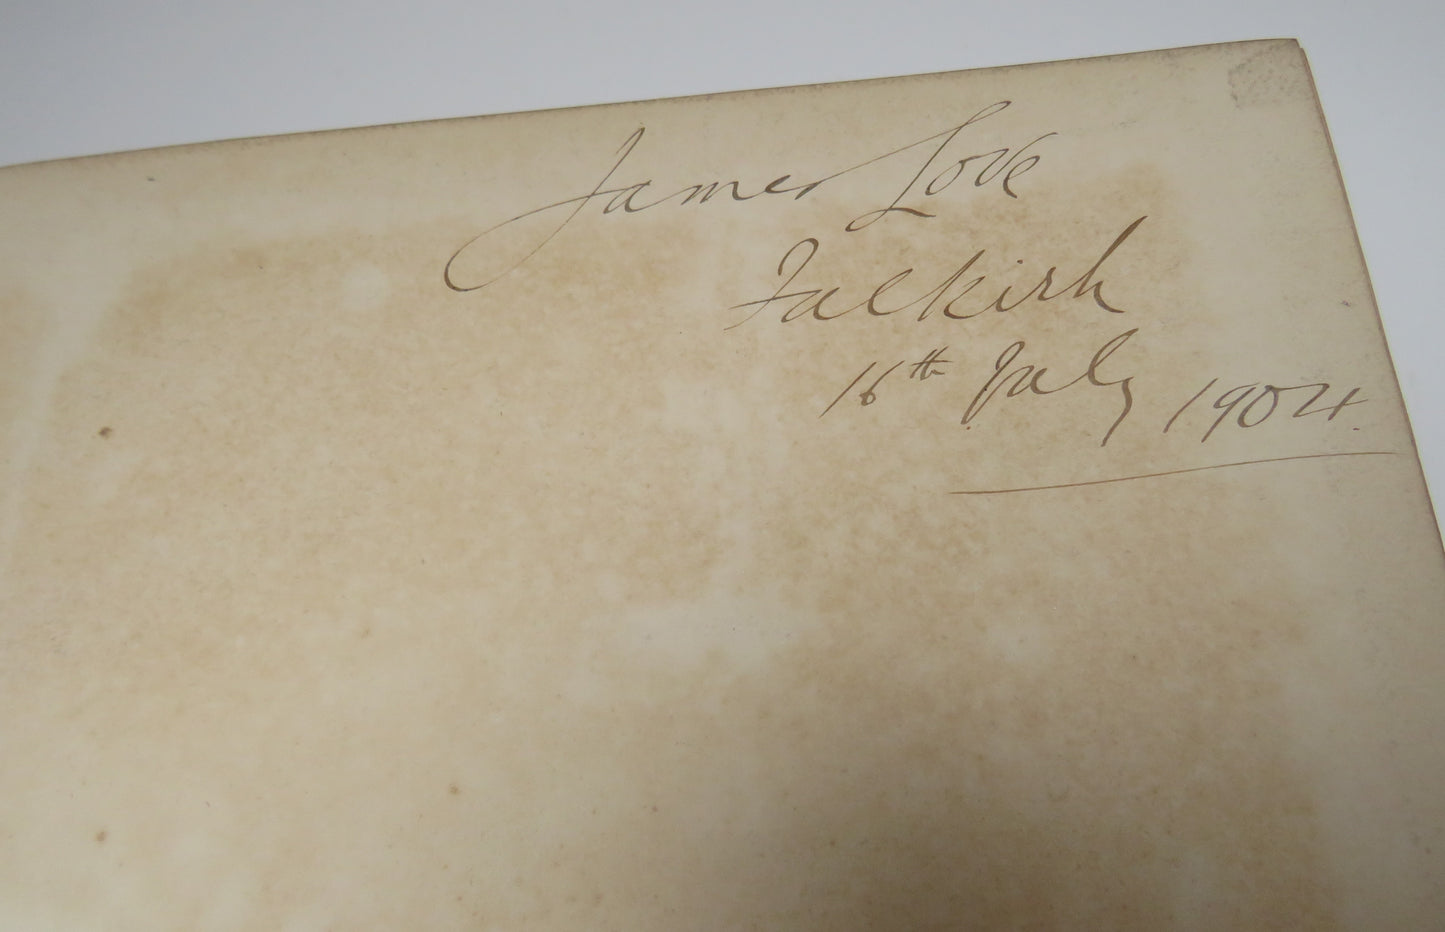 James Love
Falkirk
16th July 1904.